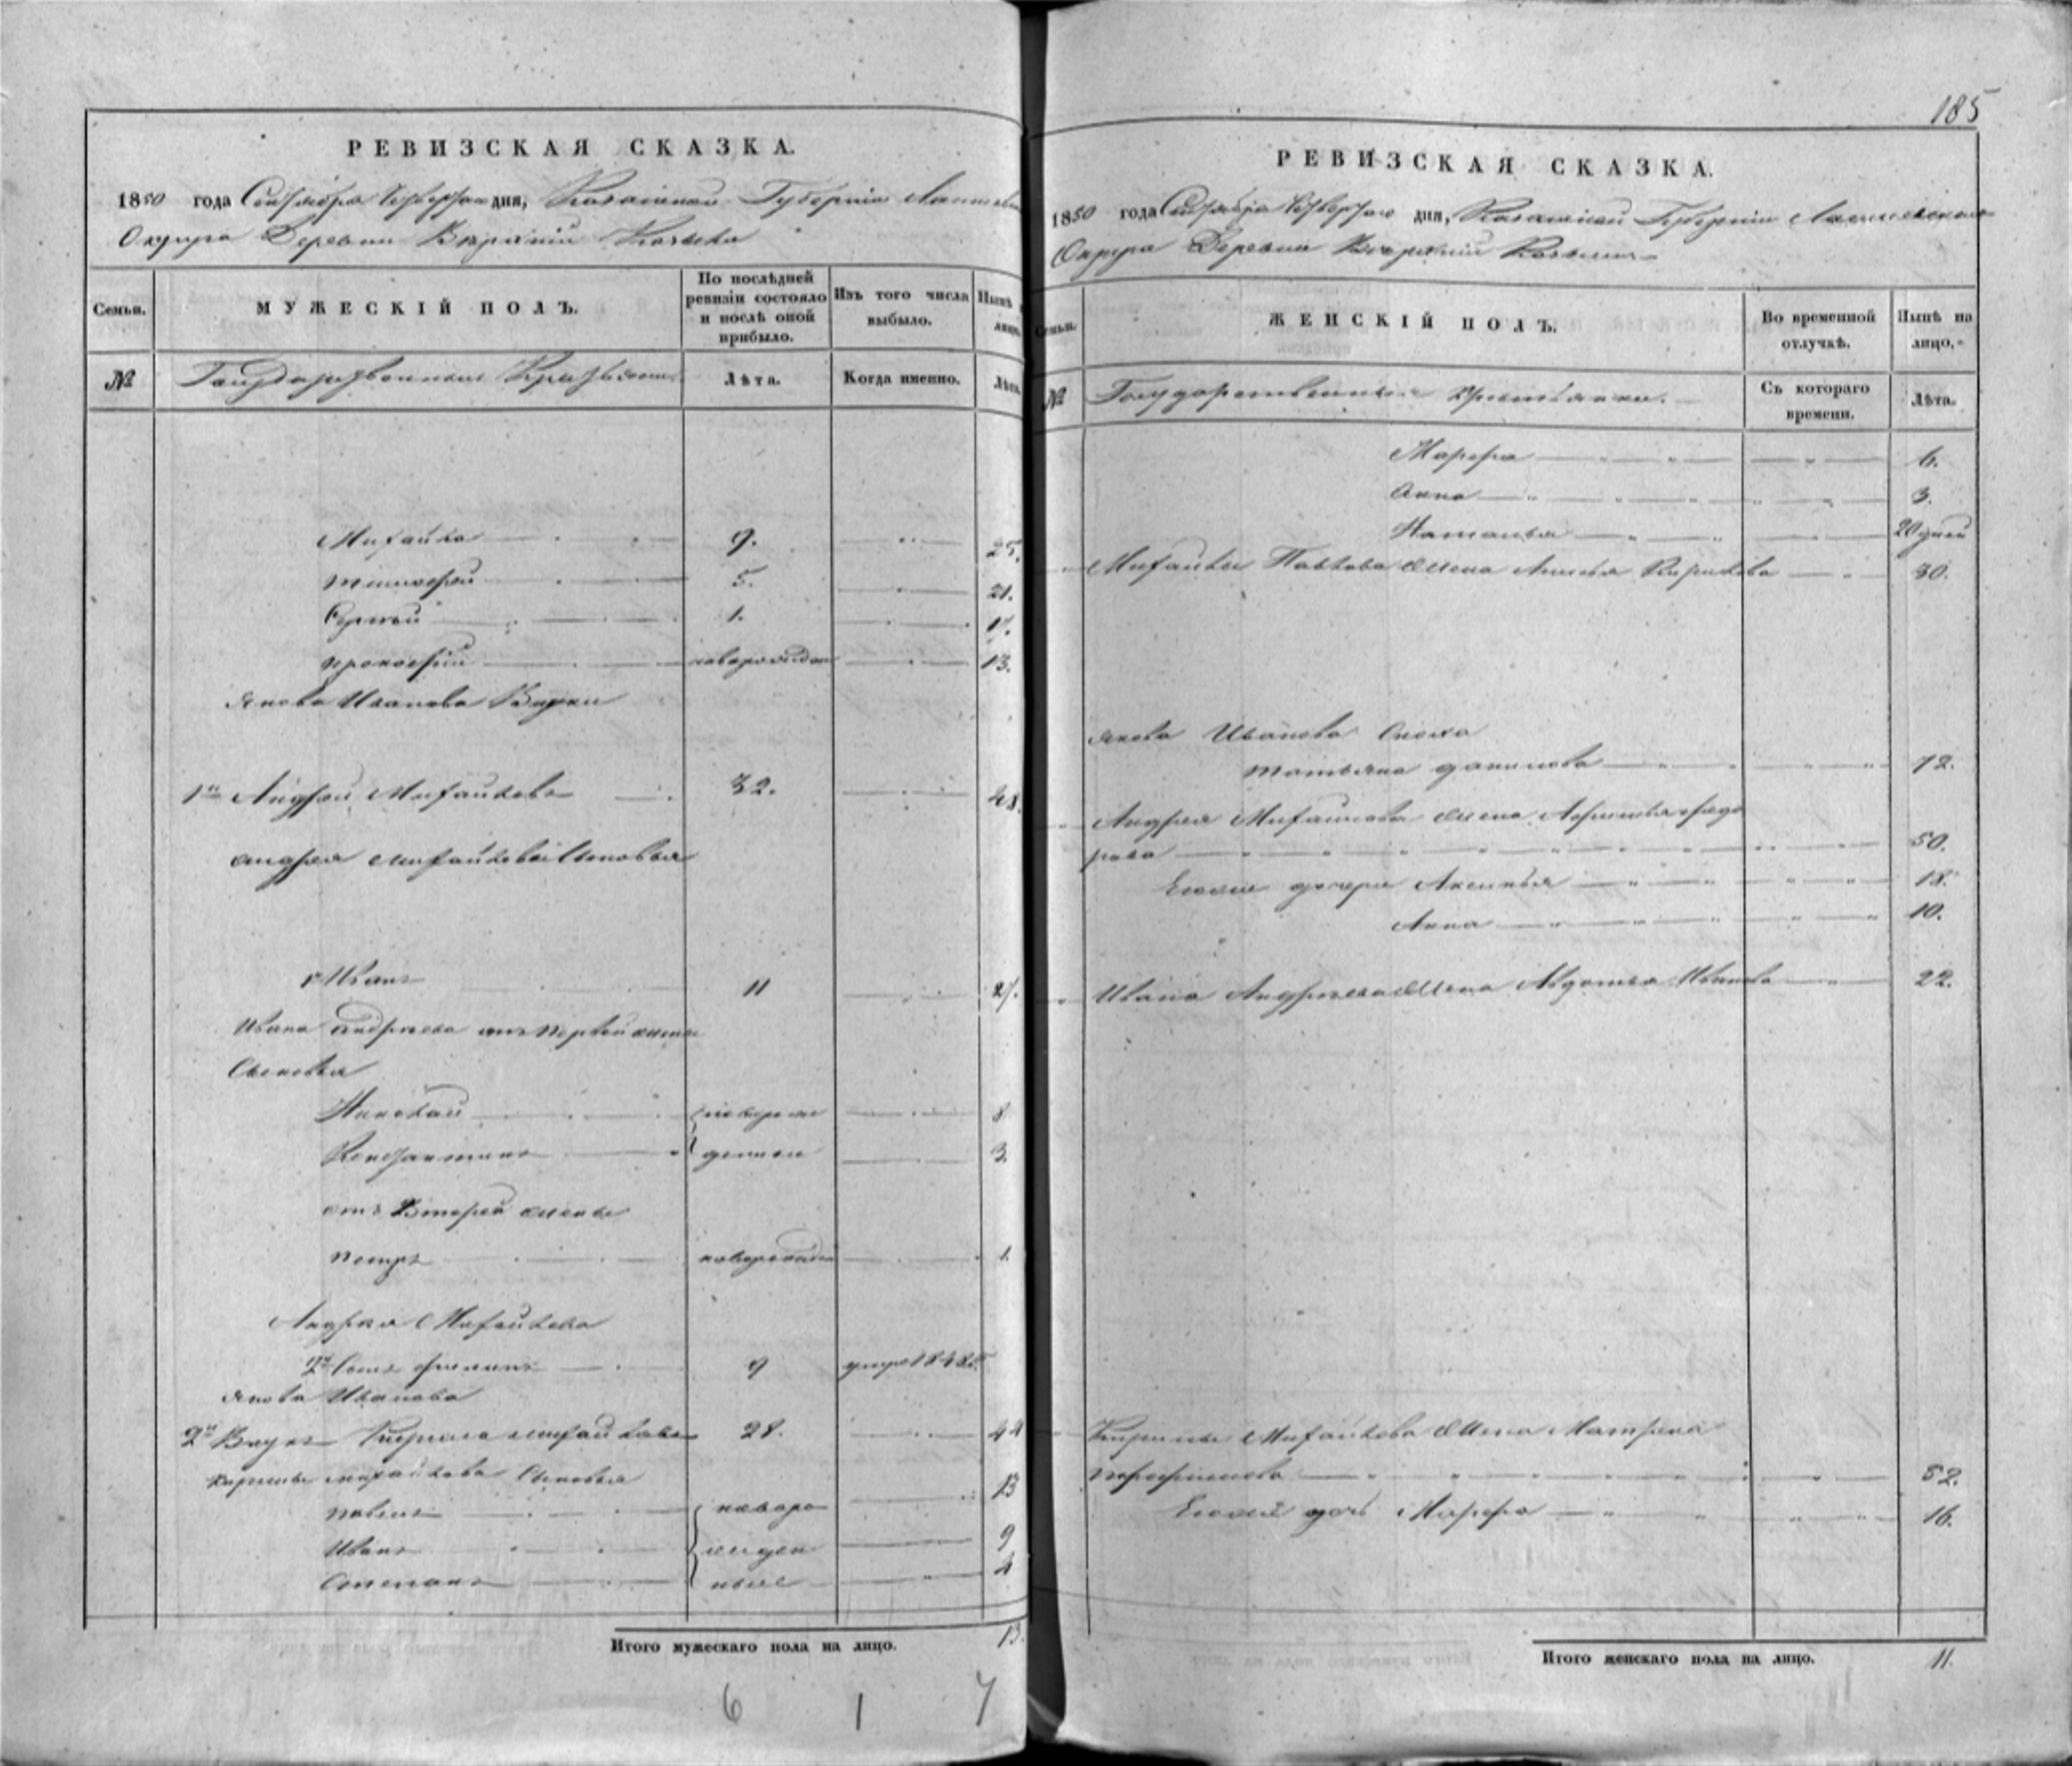 РЕВИЗСКАЯ СКАЗКА.
1850 года Сентября Четвертого дня, Казанской Губернiи
Округа Деревни
Семьи.
МУЖЕСКIЙ ПОЛЪ.
По послѣдней ревизiи состояло и послѣ оной прибыло.
Изъ того числа выбыло.
Нынѣ
№
Лѣта.
Когда именно.
Лѣта
Михайла 9. 25.
Тимофей 5. 21.
Сергей 1. 17.
Прокофiй новорожден 13.
Якова Иванова Внуки
1й Андрей Михайловъ 32. 48.
Андрея Михайлова Сыновья
1й Иванъ 11 27.
Ивана Андреева отъ первой жены
Сыновья
Николай новорож 8
Константинъ денные 3
отъ Второй жены
Петръ новорожден 1.
Андрея Михайлова
2й Сынъ Филипъ 9
Якова Иванова
2й Внукъ Кирила Михайловъ 28. 44
Кирилы Михайлова Сыновья
13
Павелъ новоро
Иванъ жден 9
Степанъ ные 4
Итого мужескаго пола на лицо. 13.
6 1 7
185
РЕВИЗСКАЯ СКАЗКА.
1850 года Сентября Четвертого дня, Казанской Губернiи
Округа Деревни
Семьи.
ЖЕНСКIЙ ПОЛЪ.
Во временной отлучкѣ.
Нынѣ на лицо.
№
Государственные Крестьянки.
Съ котораго времени.
Лѣта.
Марфа 6.
Анна 3.
Наталья 20 дней
Михайлы Павлова жена Кирилова 30.
Якова Иванова Сноха
Татьяна Данилова 72.
Андрея Михайлова жена
рова 50.
дочери Аксинья 18.
Анна 10.
Ивана Андреева жена Авдотья Иванова 22.
Кирилы Михайлова жена Матрена
52.
дочь Марфа 16.
Итого женскаго пола на лицо. 11.